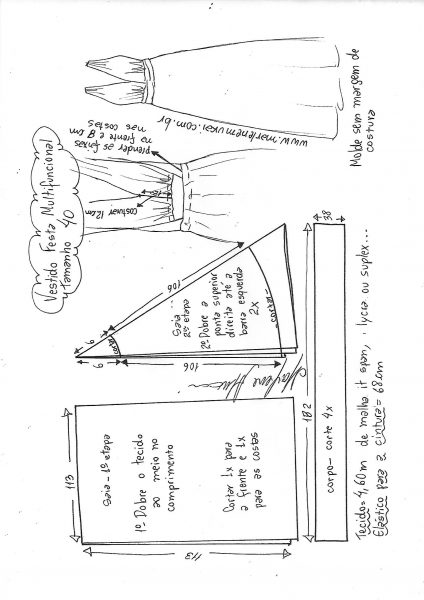 Vestido Festa Multifuncional
tamanho 40
prender as faixas
na frente e 8 cm
nas costas
costurar 12cm
www.marlenemukai.com.br
Molde sem margem de
costura
Saia - 1ª etapa
1º Dobre o tecido
ao meio no
comprimento
Cortar 1x para
a frente e 1x
para as costas
113
113
Saia
2ª etapa
2º Dobre a
ponta superior
direita até a
barra esquerda
2x
cortar
cortar
9
9
106
106
Marlene Mukai
corpo - corte 4x
182
38
Tecido = 4,60m de malha it span, lycra ou suplex...
Elástico para a cintura = 68cm